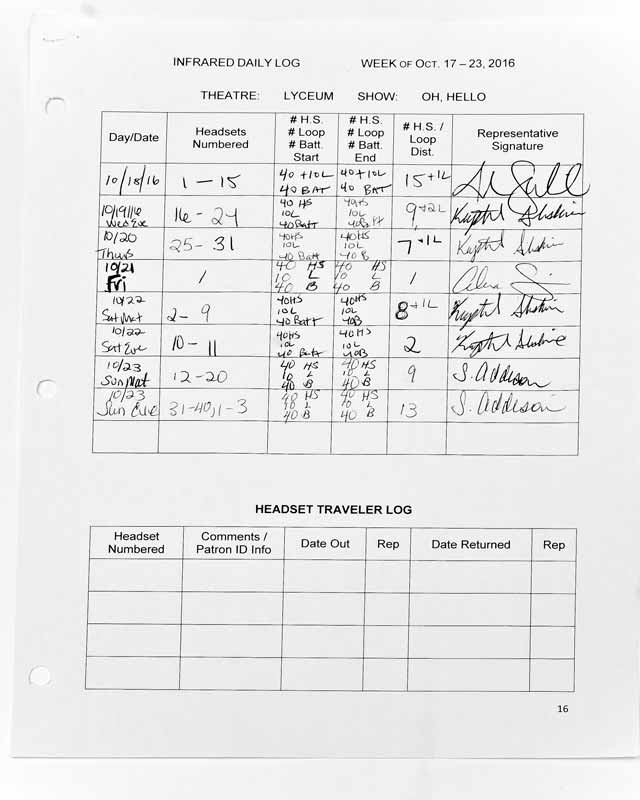 INFRARED DAILY LOG WEEK OF OCT. 17 – 23, 2016
THEATRE: LYCEUM SHOW: OH, HELLO
Day/Date
Headsets
Numbered
# H.S.
# Loop
# Batt.
Start
# H.S.
# Loop
# Batt.
End
# H.S. /
Loop
Dist.
Representative
Signature
10/18/16
1 – 15
40 + 10L
40 BAT
40 + 10L
40 BAT
15 + 1L
10/19/16
Wed Eve
16 - 24
40 HS
10L
40 Batt
40HS
10L
40Batt
9 + 2L
10/20
Thurs
25 - 31
40HS
10L
40 Batt
40HS
10L
40Batt
7 + 1L
10/21
Fri
/
40 HS
10 L
40 B
40 HS
10 L
40 B
/
10/22
Sat Mat
2 - 9
40HS
10L
40Batt
40HS
10L
40B
8 + 1L
10/22
Sat Eve
10 - 11
40HS
10L
40 Batt
40HS
10L
40B
2
10/23
Sun Mat
12 - 20
40 HS
10 L
40 B
40 HS
10 L
40 B
9
S. Addison
10/23
Sun Eve
31-40, 1-3
40 HS
10 L
40 B
40 HS
10 L
40 B
13
S. Addison
HEADSET TRAVELER LOG
Headset
Numbered
Comments /
Patron ID Info
Date Out
Rep
Date Returned
Rep
16